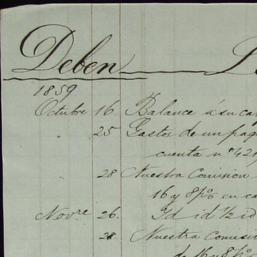 Deben
1859
Octubre 16. Balance á su ca
25 Gastos de un pag
cuenta nº 421
28 Nuestra Comision
16 y 8 p% en ca
Novre 26. Id id ½ id
28 Nuestra Comisi
de 16 y 8 p%